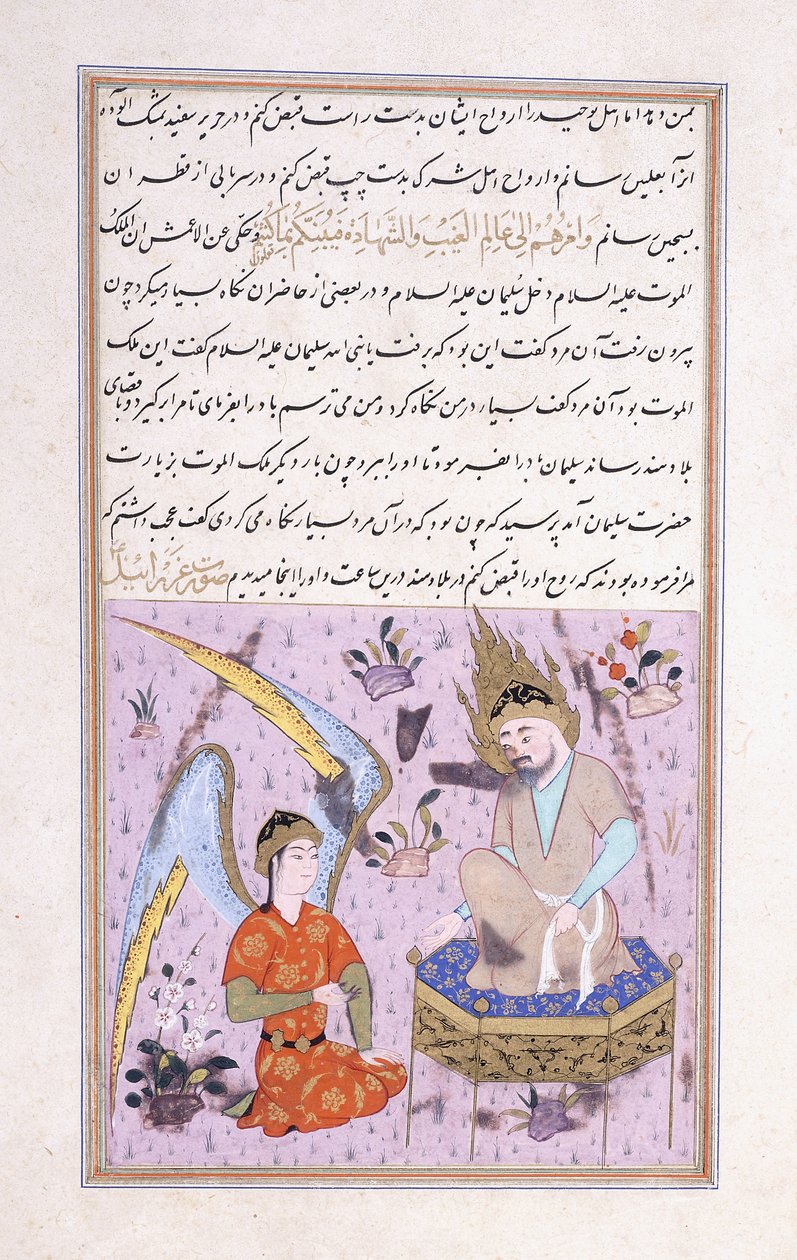 بمن دهد اما اهل توحید را ارواح ایشان بدست راست قبض کنم و در حریر سفید بمشک آلوده
آنرا بعلیین رسانم و ارواح اهل شرک بدست چپ قبض کنم و در سربالی از قطران
بسجین رسانم وَاَمْرُهُمْ اِلیٰ عَالِمِ الْغَیْبِ وَالشَّهَادَةِ فَیُنَبِّئُکُمْ بِمَا کُنْتُمْ تعملون و حکی عن الاعمش ان الملک
الموت علیه السلام دخل سُلیمان علیه السلام و در بعضی از حاضران نگاه بسیار میکرد چون
بیرون رفت آن مرد گفت این بود که برفت یا نبی الله سلیمان علیه السلام گفت این ملک
الموت بود آن مرد گفت بسیار در من نگاه کرد و من می ترسم باد را بفرمای تا مرا برگیرد و باقصای
بلاد هند رساند سلیمان باد را بفرمود تا او را ببرد چون بار دیگر ملک الموت بزیارت
حضرت سلیمان آمد پرسید که چون بود که در آن مرد بسیار نگاه می کردی گفت عجب داشتم که
مرا فرموده بودند که روح او را قبض کنم در بلاد هند درین ساعت و او را اینجا میدیدم صورت عزرائیل ع